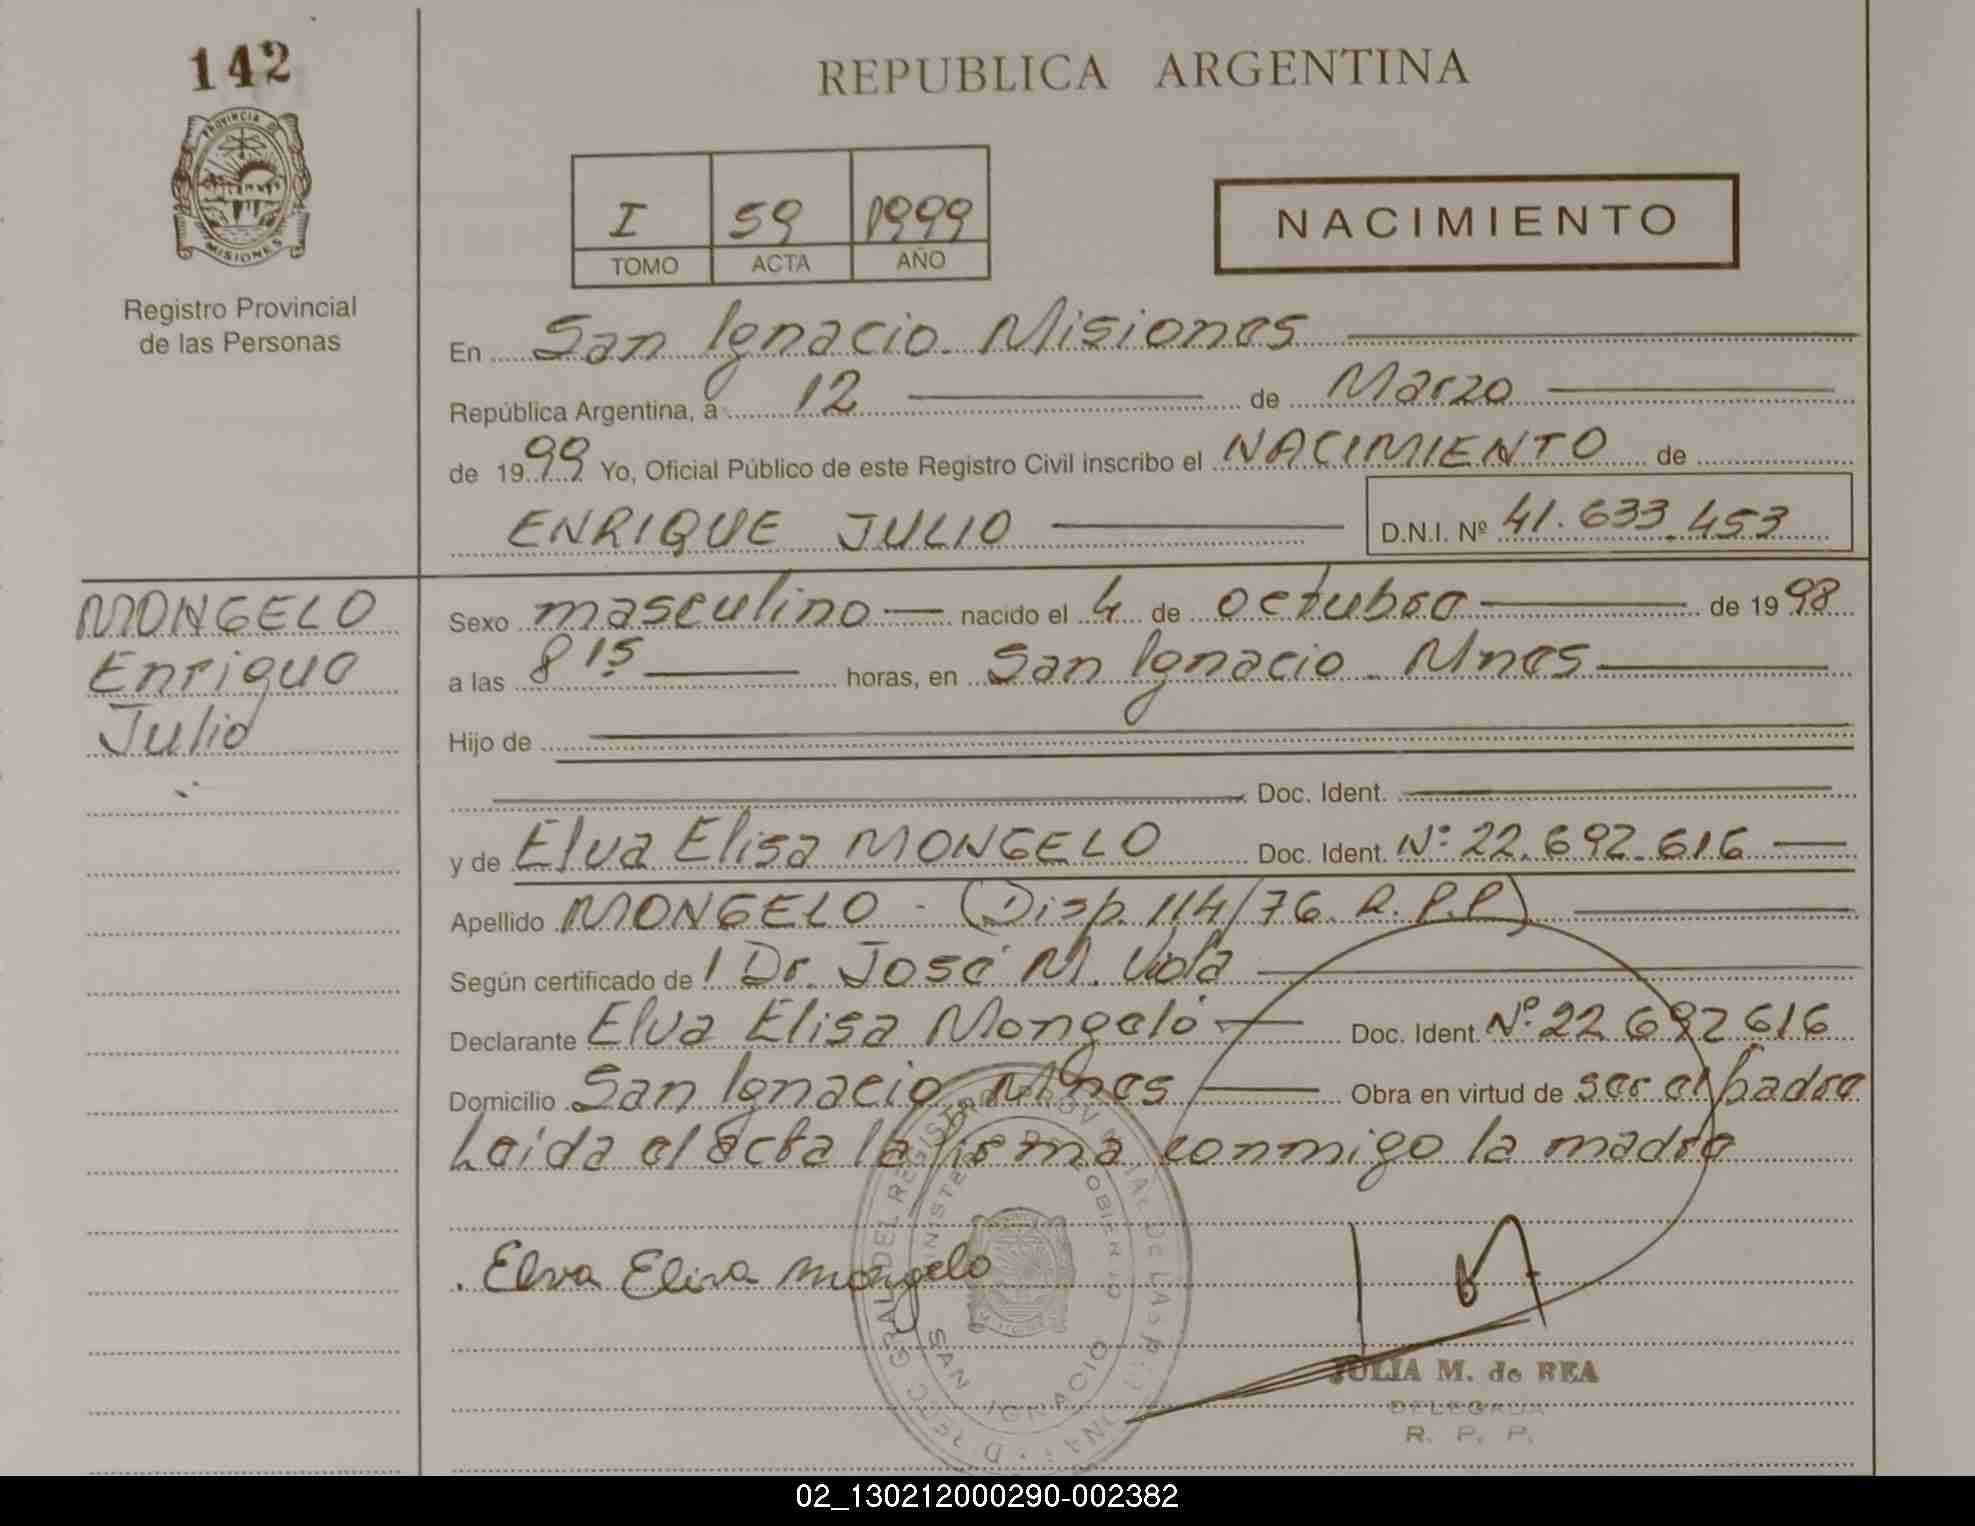 142
REPUBLICA ARGENTINA
PROVINCIA DE
MISIONES
I 59 1999
TOMO ACTA AÑO
NACIMIENTO
Registro Provincial
de las Personas
En San Ignacio - Misiones
República Argentina, a 12 de Marzo
de 1999 Yo, Oficial Público de este Registro Civil inscribo el NACIMIENTO de
ENRIQUE JULIO D.N.I. Nº 41.633.453
MONGELO
Enrique
Julio
Sexo masculino nacido el 4 de octubre de 1998
a las 8 15 horas, en San Ignacio - Mnes
Hijo de
Doc. Ident.
y de Elva Elisa MONGELO Doc. Ident. Nº 22.692.616
Apellido MONGELO - (Disp. 114/76 R.P.P)
Según certificado de Dr. José M. Viola
Declarante Elva Elisa Mongeló Doc. Ident. Nº 22 692 616
Domicilio San Ignacio Mnes Obra en virtud de ser el padre
Leida el acta la firma conmigo la madre
Elva Elisa Mongelo
MINISTERIO DE GOBIERNO
SAN IGNACIO
MISIONES
JULIA M. de REA
DELEGADA
R. P. P.
02_130212000290-002382